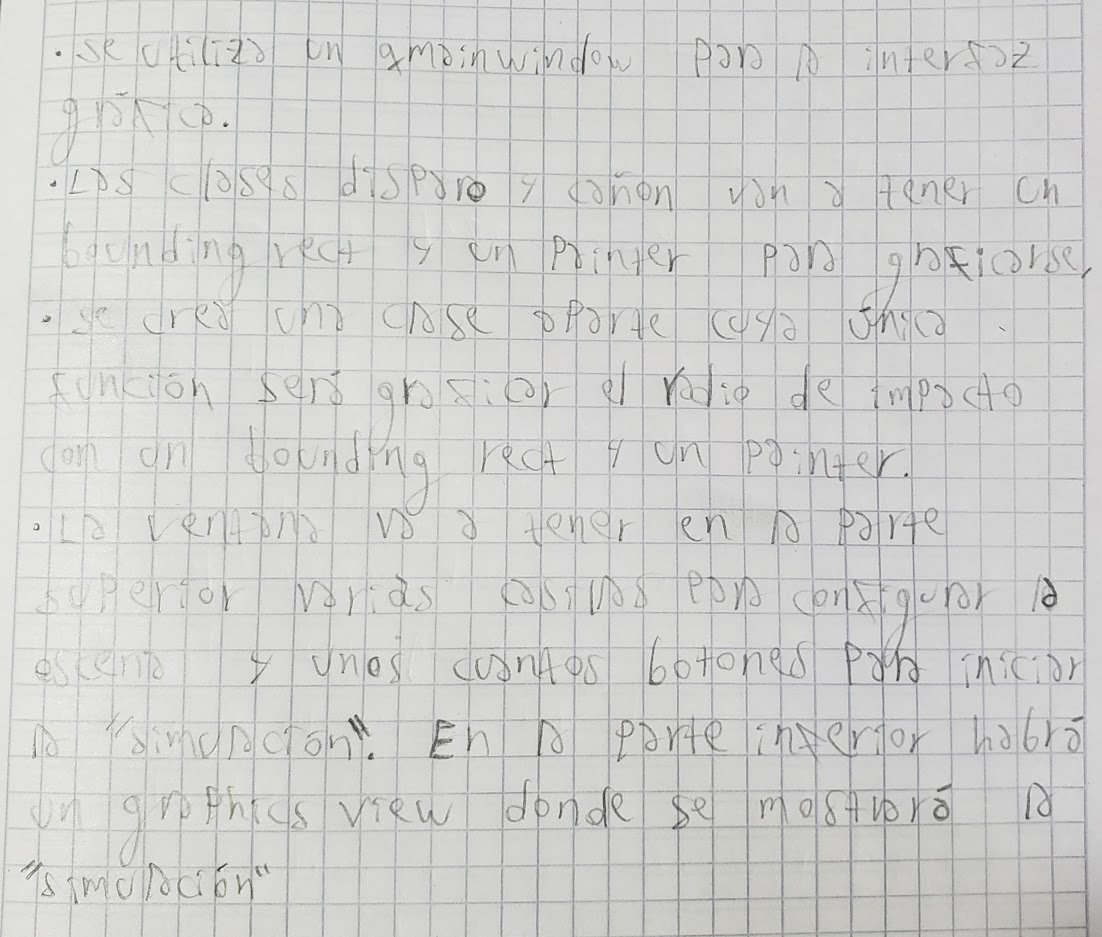 · se utiliza un qmainwindow para la interfaz
gráfica.
· Las clases disparo y cañon van a tener un
bounding rect y un painter para graficarse,
· se crea una clase aparte cuya única
función será graficar el radio de impacto
con un bounding rect y un painter.
· La ventana va a tener en la parte
superior varias casillas para configurar la
escena y unos cuantos botones para iniciar
la "simulación". En la parte inferior habrá
un graphics view donde se mostrará la
"simulación"